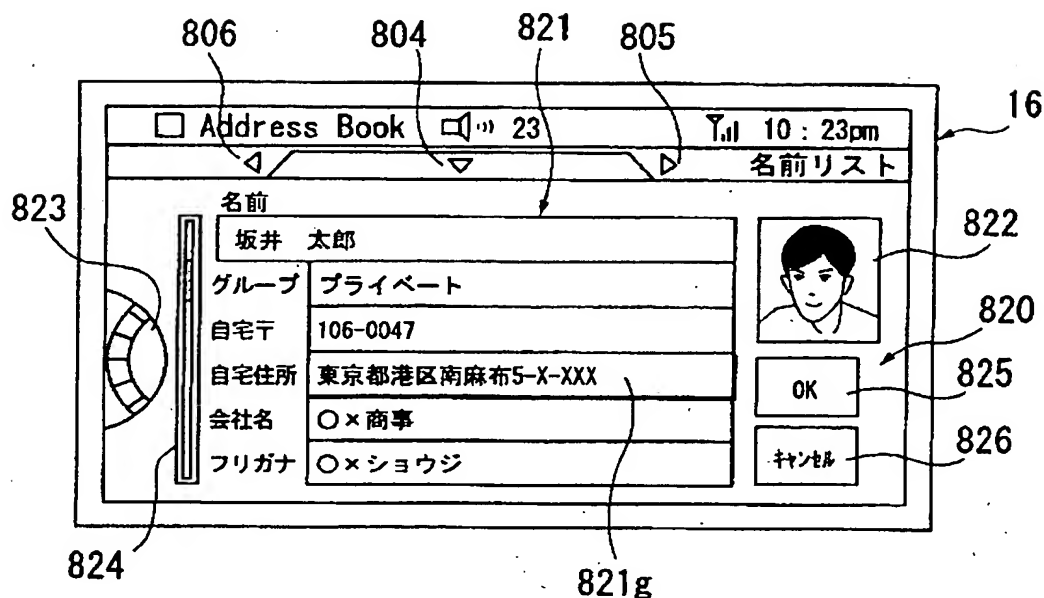 806 804 821 805
16
Address Book 23 10 : 23pm
名前リスト
823
名前
坂井 太郎
822
グループ プライベート
自宅〒 106-0047
820
自宅住所 東京都港区南麻布5-X-XXX
OK
825
会社名 ○×商事
フリガナ ○×ショウジ
キャンセル
826
824
821g